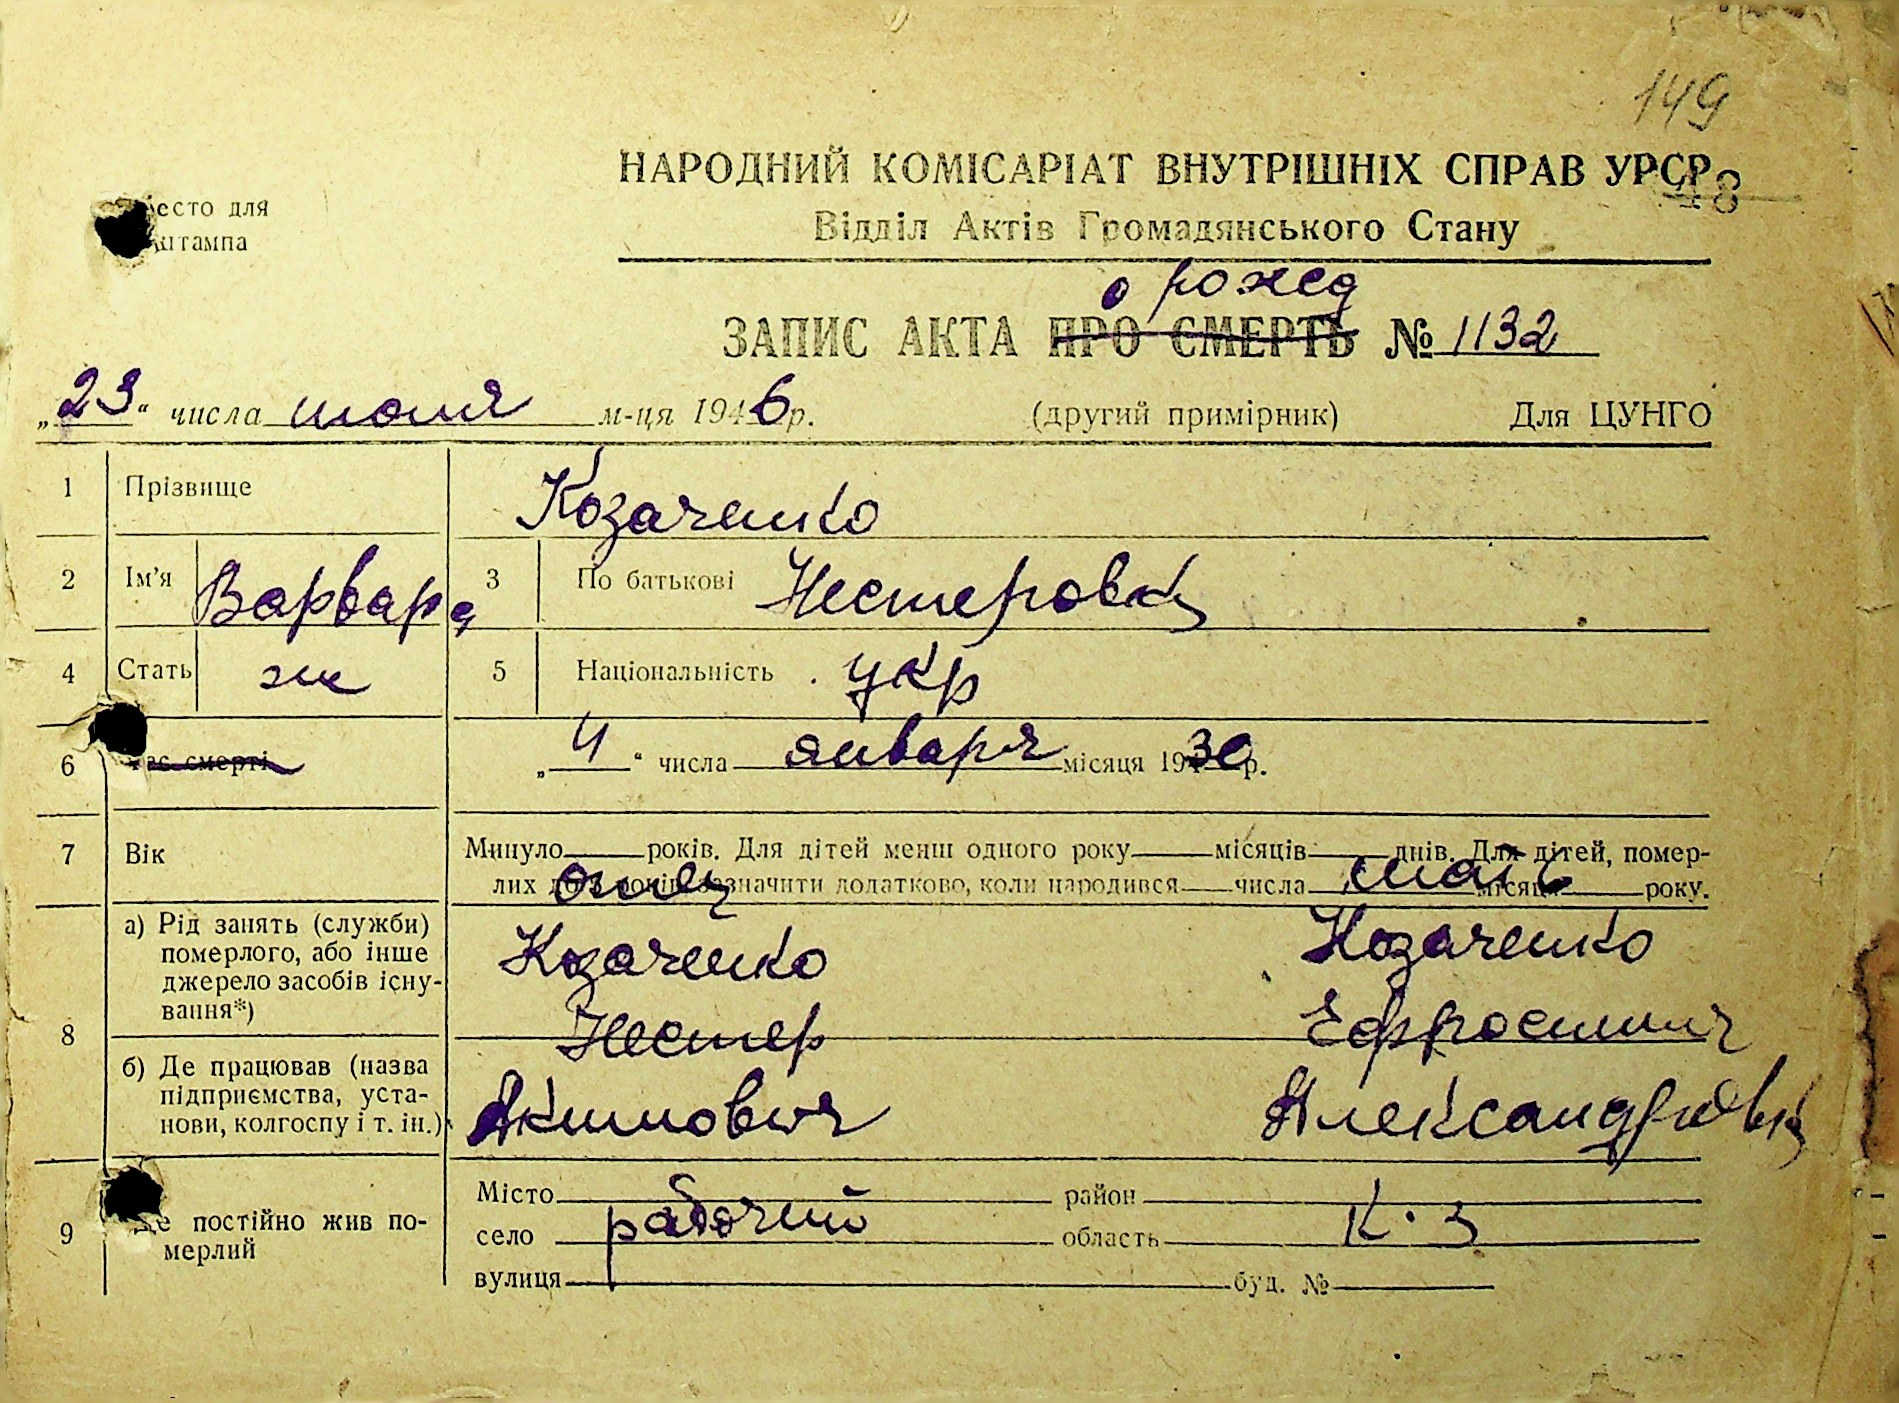 149
НАРОДНИЙ КОМІСАРІАТ ВНУТРІШНІХ СПРАВ УРСР
48
Відділ Актів Громадянського Стану
место для
штампа
о рожед
ЗАПИС АКТА ПРО СМЕРТЬ № 1132
„23“ числа июля м-ця 1946 р. (другий примірник) Для ЦУНГО
1 Прізвище Козаченко
2 Ім'я Варвара 3 По батькові Нестеровна
4 Стать ж 5 Національність укр
6 Час смерті „4“ числа января місяця 1930 р.
7 Вік Минуло років. Для дітей менш одного року місяців днів. Для дітей, помер-
лих до 3 років зазначити додатково, коли народився числа місяця року.
отец мать
8 а) Рід занять (служби)
померлого, або інше
джерело засобів існу-
вання*)
Козаченко Козаченко
Нестер Ефросиния
б) Де працював (назва
підприємства, уста-
нови, колгоспу і т. ін.)
Акимович Александровна
9 Де постійно жив по-
мерлий
Місто район
село рабочий область к-з
вулиця буд. №